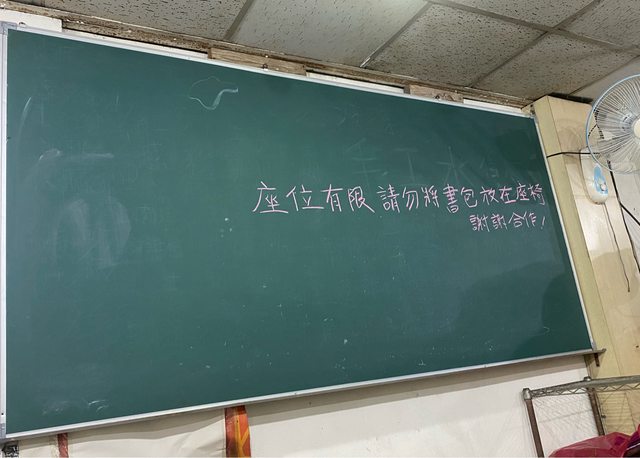 座位有限 請勿將書包放在座椅
謝謝合作!